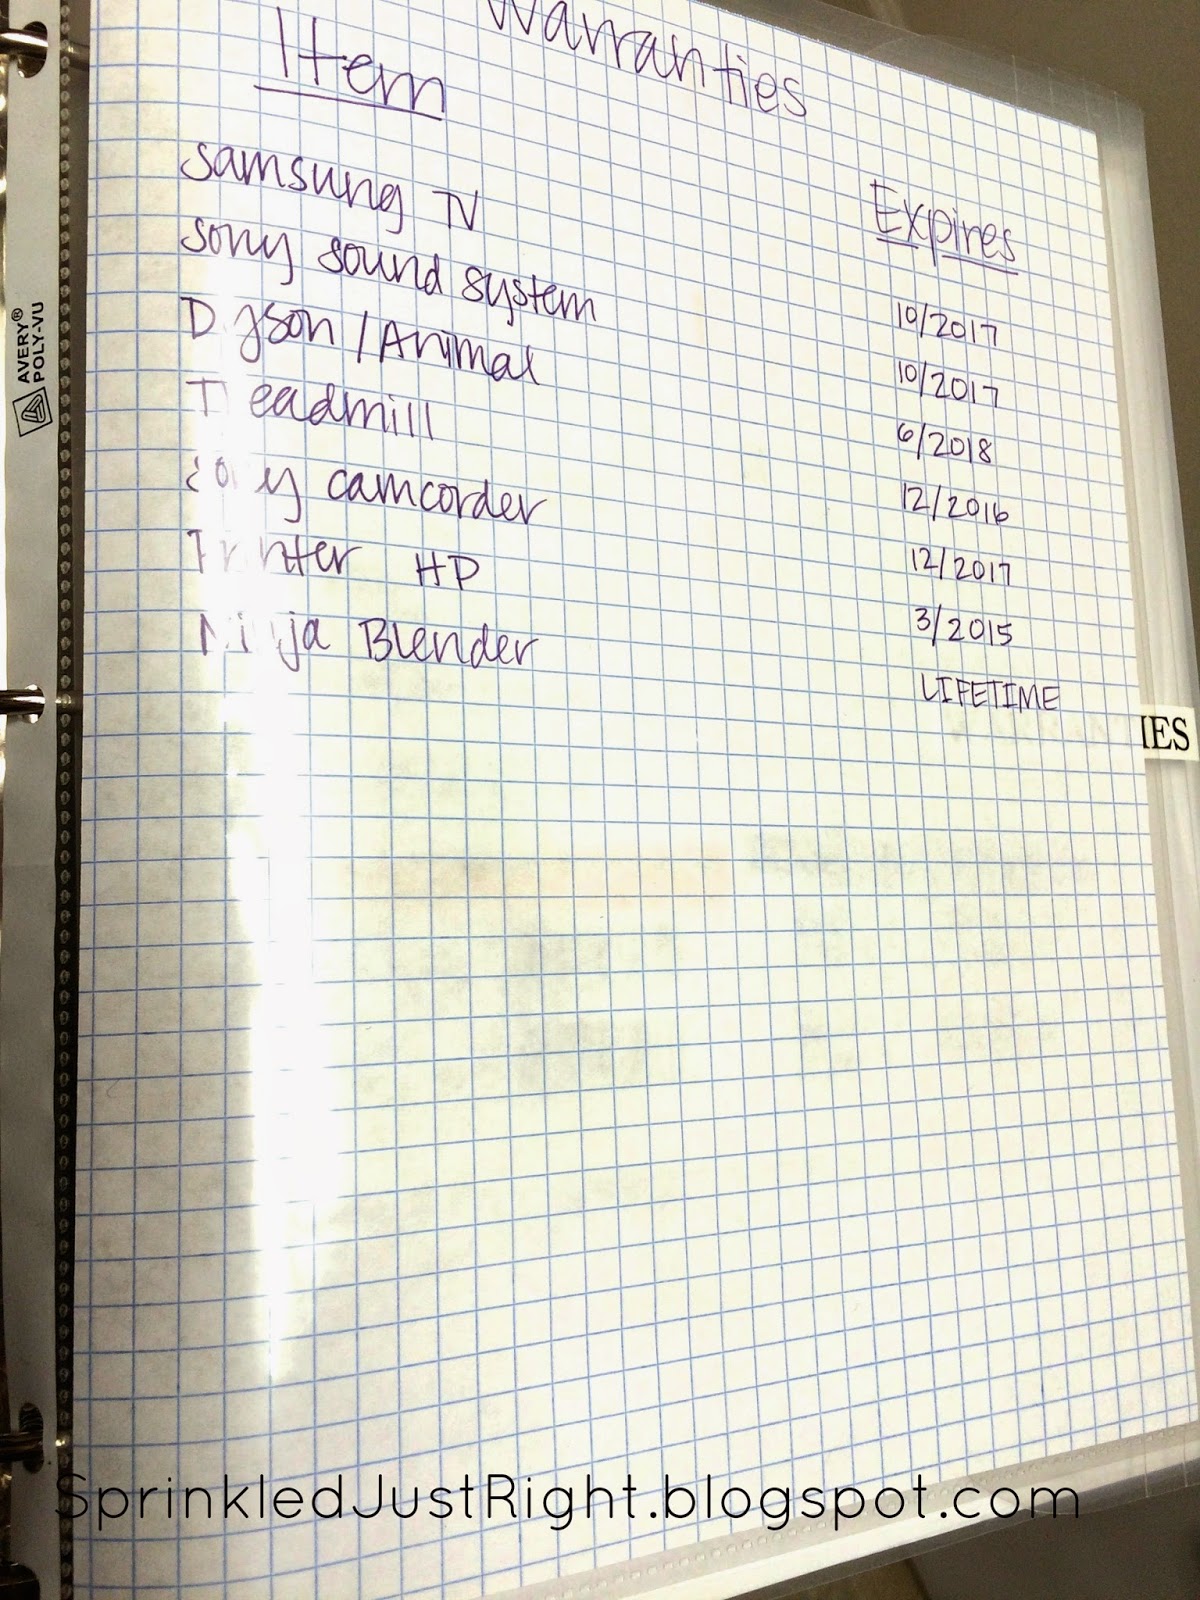 Warranties
Item Expires
Samsung TV 10/2017
Sony sound system 10/2017
Dyson / Animal 6/2018
Treadmill 12/2016
Sony camcorder 12/2017
Printer HP 3/2015
Ninja Blender LIFETIME
IES
AVERY®
POLY-VU
SprinkledJustRight.blogspot.com